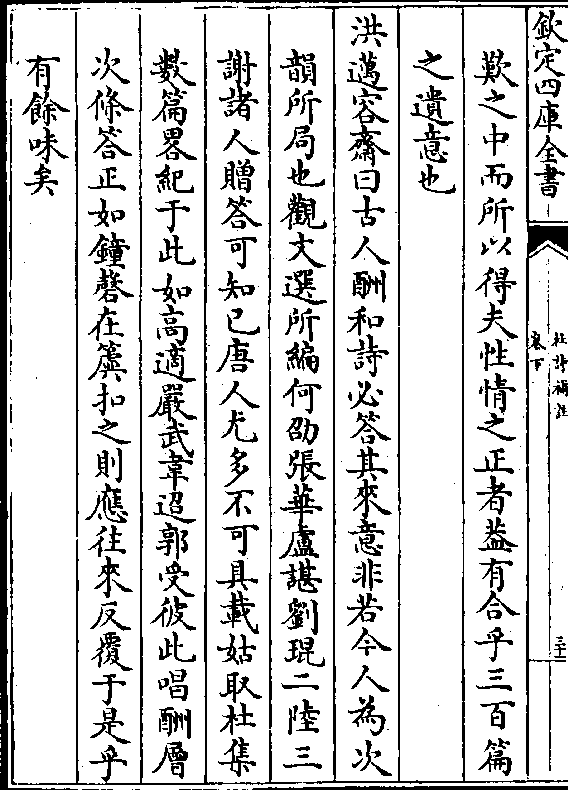 欽定四庫全書
杜詩補註
卷下
三十一
歎之中而所以得夫性情之正者葢有合乎三百篇
之遺意也
洪邁容齋曰古人酬和詩必答其來意非若今人為次
韻所局也觀文選所編何劭張華盧諶劉琨二陸三
謝諸人贈答可知已唐人尤多不可具載姑取杜集
數篇畧紀于此如高適嚴武韋迢郭受彼此唱酬層
次條答正如鐘磬在簴扣之則應往來反覆于是乎
有餘味矣